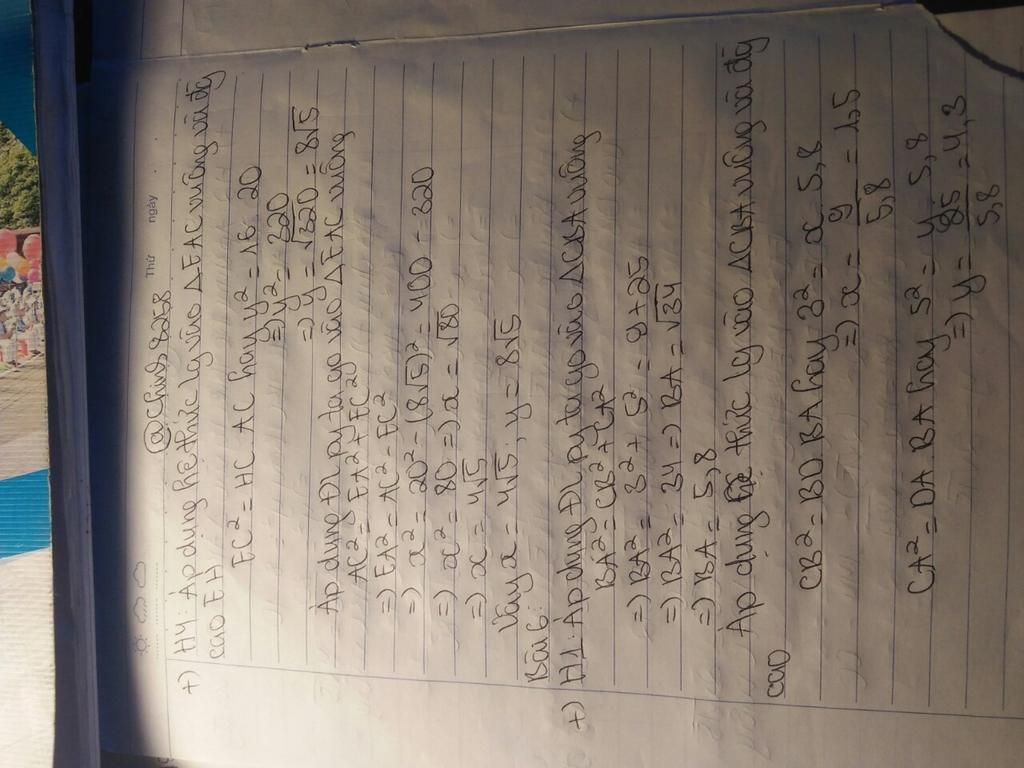 Thứ ngày
@Chiu8258
+) H4: Áp dụng hệ thức lg vào ΔEAC vuông và đg
cao EH
EC² = HC AC hay y² = 16. 20
=) y² = 320
=) y = √320 = 8√5
Áp dụng ĐL py ta go vào ΔEAC vuông
AC² = EA² + EC²
=) EA² = AC² - EC²
=) x² = 20² - (8√5)² = 400 - 320
=) x² = 80 =) x = √80
=) x = 4√5
Vậy x = 4√5; y = 8√5
Bài 6:
+) H1: Áp dụng ĐL py ta go vào ΔCBA vuông
BA² = CB² + CA²
=) BA² = 3² + 5² = 9 + 25
=) BA² = 34 =) BA = √34
=) BA = 5,8
Áp dụng hệ thức lg vào ΔCBA vuông và đg
cao
CB² = BD BA hay 3² = x. 5,8
=) x = 9/5,8 = 1,5
CA² = DA BA hay 5² = y. 5,8
=) y = 25/5,8 = 4,3